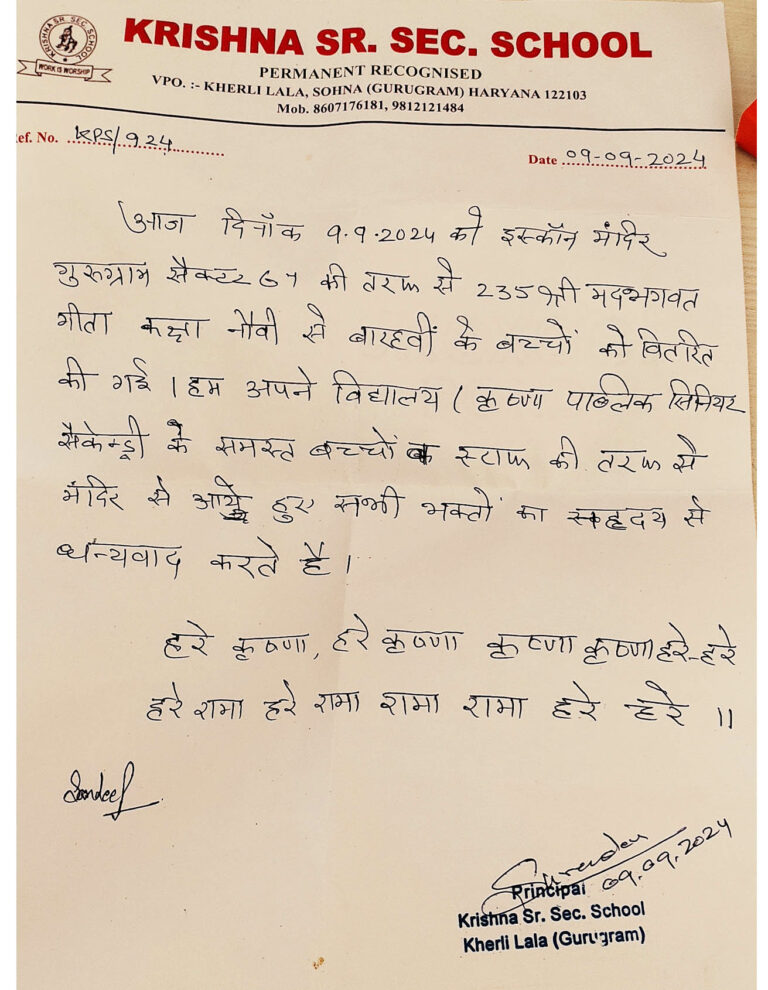 KRISHNA SR. SEC. SCHOOL
WORK IS WORSHIP
KRISHNA SR. SEC. SCHOOL
PERMANENT RECOGNISED
VPO. :- KHERLI LALA, SOHNA (GURUGRAM) HARYANA 122103
Mob. 8607176181, 9812121484
ef. No. KPS/924
Date 09-09-2024
आज दिनाँक 9.9.2024 को इस्कॉन मंदिर
गुरुग्राम सैक्टर 67 की तरफ से 235 श्री मदभगवत
गीता कक्षा नौवी से बारहवीं के बच्चों को वितरित
की गई । हम अपने विद्यालय ( कृष्णा पाब्लिक सिनियर
सैकेन्ड्री के समस्त बच्चों व स्टाफ की तरफ से
मंदिर से आये हुए सभी भक्तों का सहृदय से
धन्यवाद करते है ।
हरे कृष्णा, हरे कृष्णा कृष्णा कृष्णा हरे-हरे
हरे रामा हरे रामा रामा रामा हरे हरे ॥
Sandeep
Surender 09.09.2024
Principal
Krishna Sr. Sec. School
Kherli Lala (Gurugram)